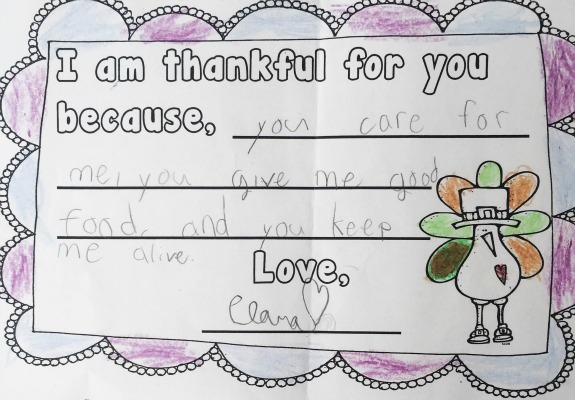 I am thankful for you
because, you care for
me, you give me good
food, and you keep
me alive.
Love,
Clara